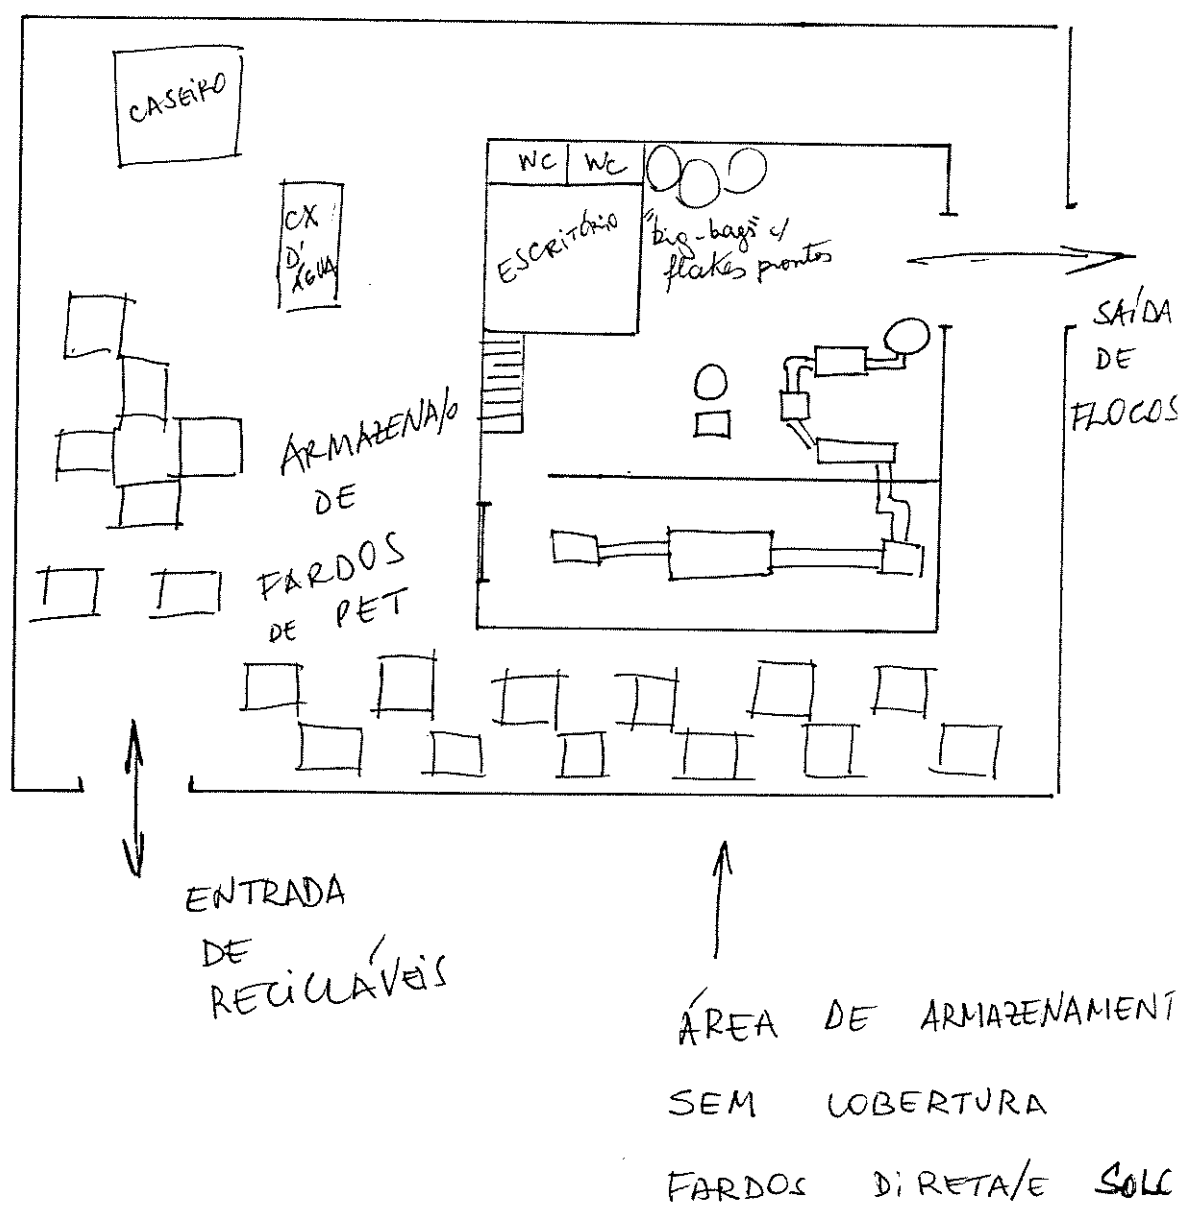 CASEIRO
CX
D'
ÁGUA
WC WC
ESCRITÓRIO
"big-bags" c/
flakes prontos
SAÍDA
DE
FLOCOS
ARMAZENA/o
DE
FARDOS
DE PET
ENTRADA
DE
RECICLÁVEIS
ÁREA DE ARMAZENAMENT
SEM COBERTURA
FARDOS DIRETA/E SOLO